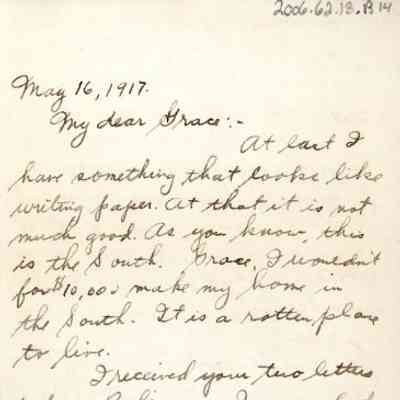 2006.62.13.B14
May 16, 1917.
My dear Grace:-
At last I
have something that looks like
writing paper. At that it is not
much good. As you know, this
is the South. Grace, I wouldn't
for $10,000 make my home in
the South. It is a rotten place
to live.
I received your two letters